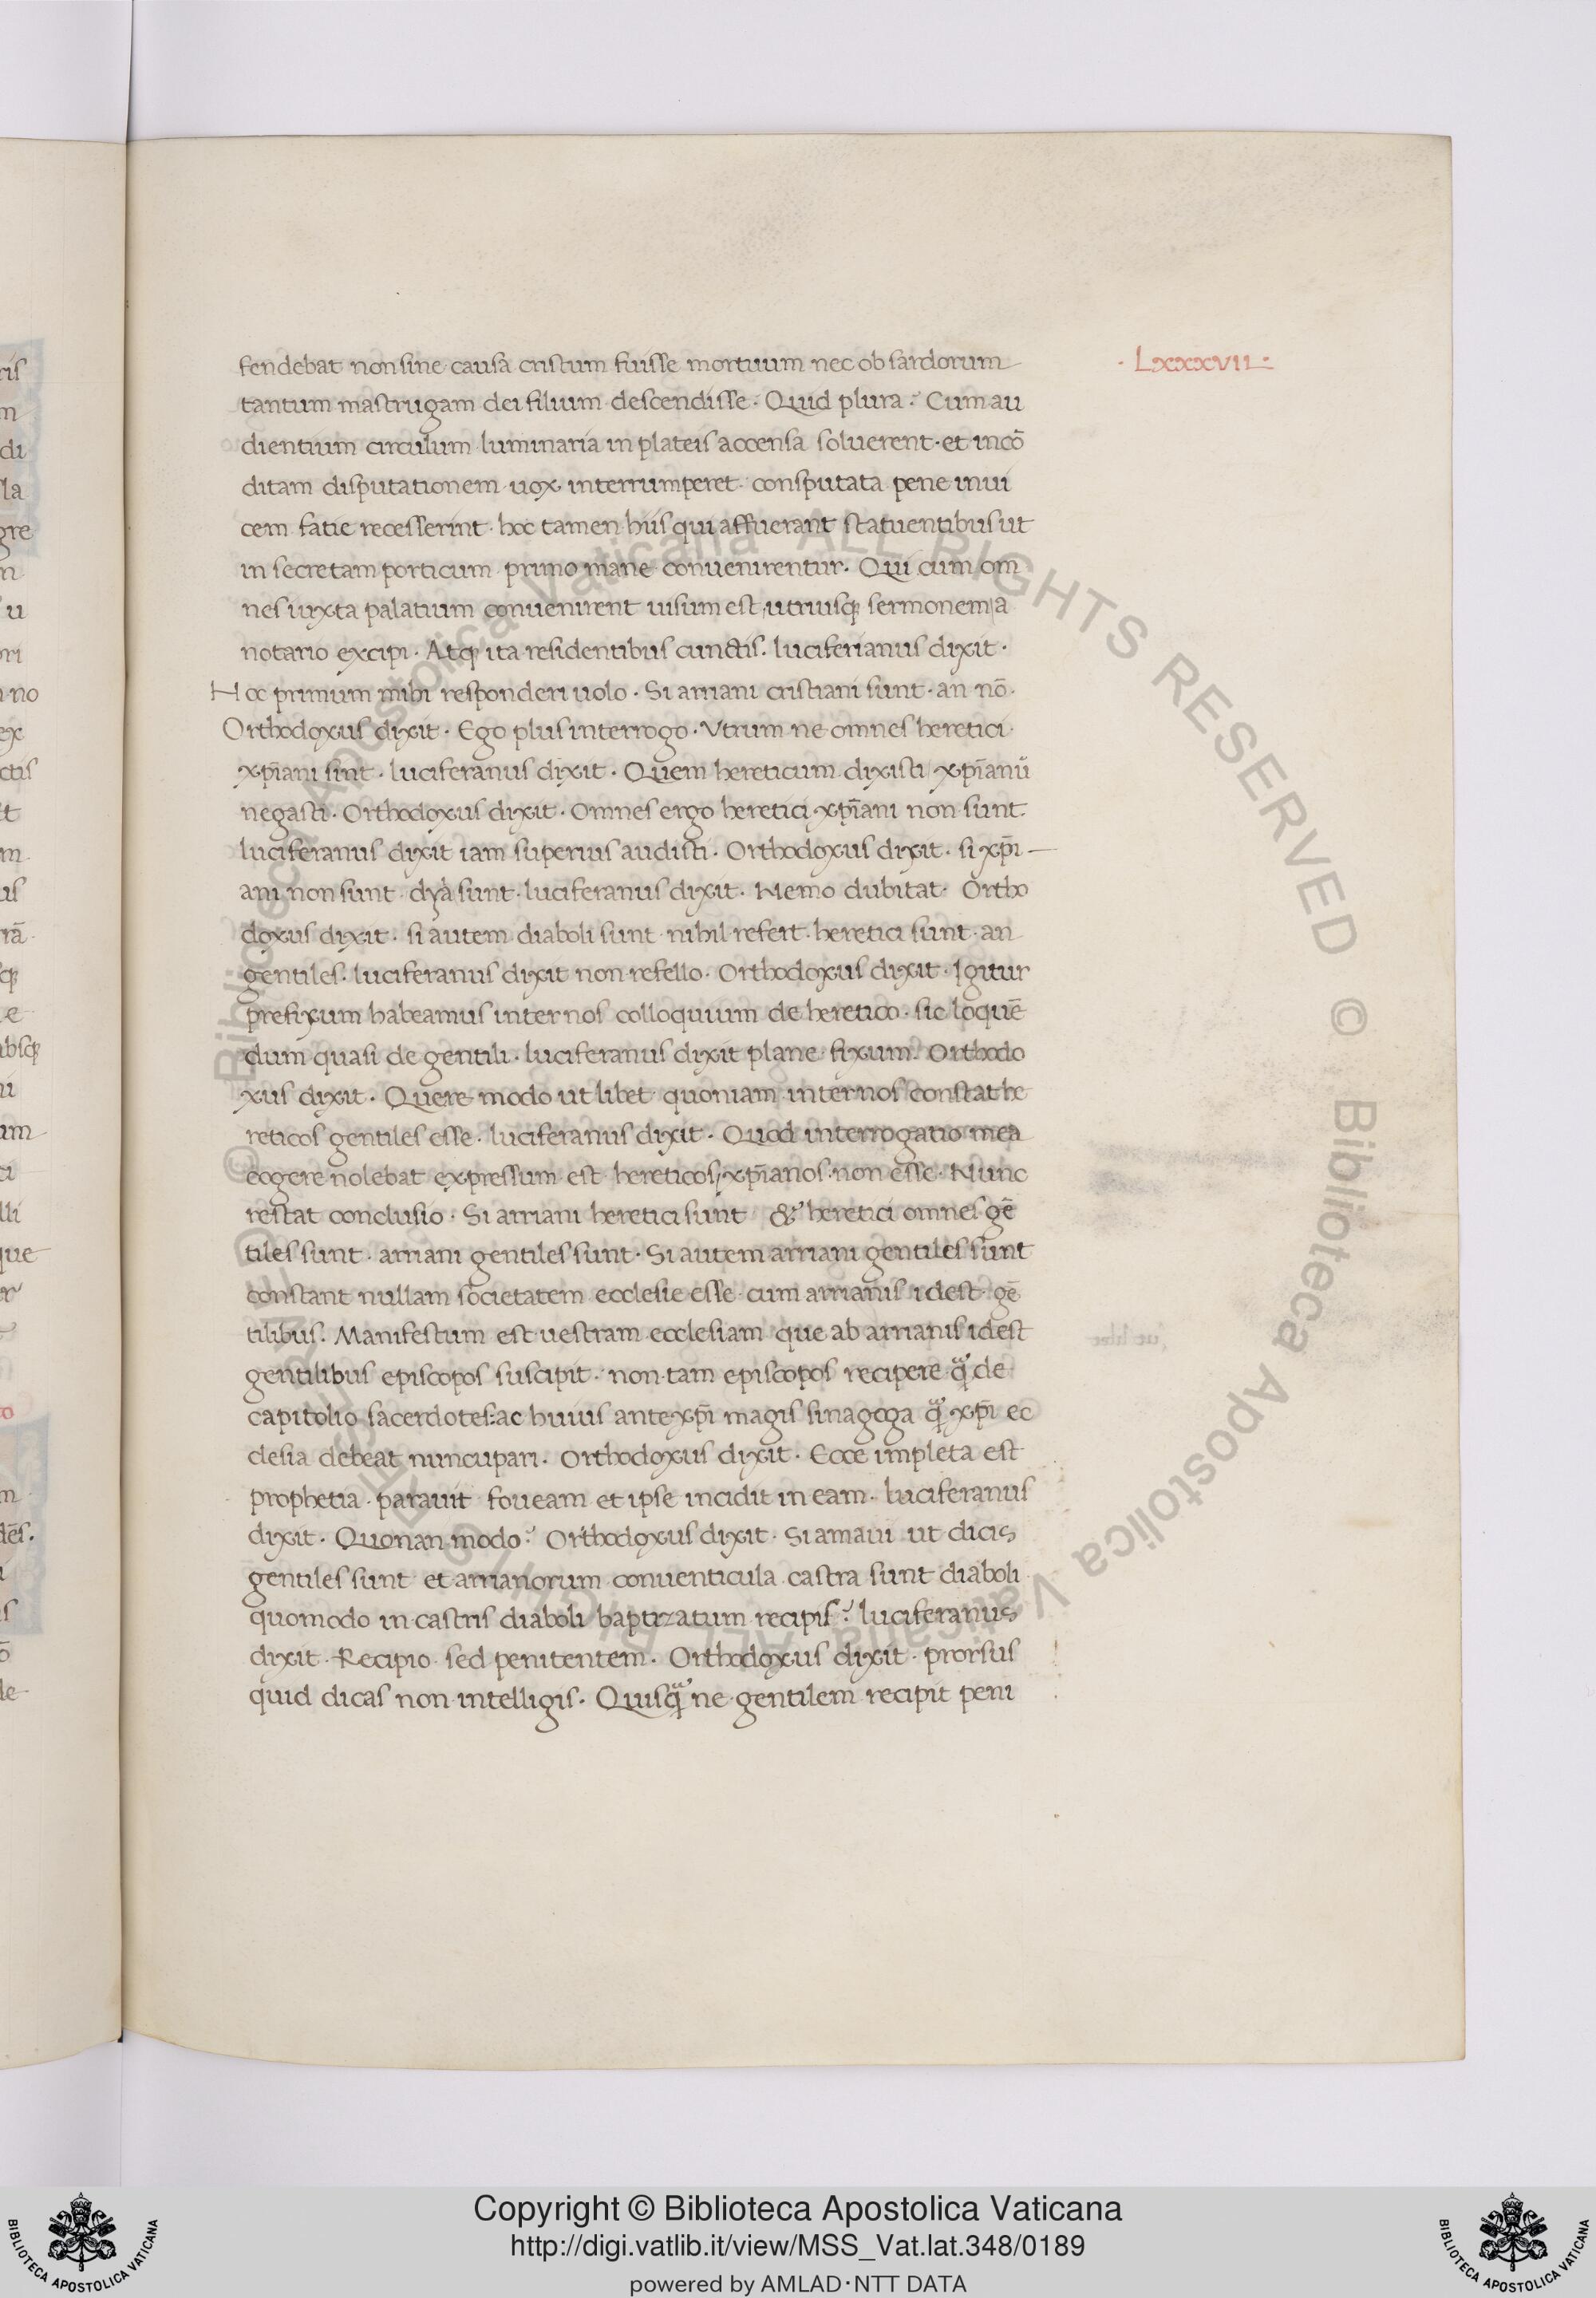 fendebat non sine causa cristum fuisse mortuum nec ob sardorum
· LXXXVII ·
tantum mastrugam dei filium descendisse · Quid plura ? Cum au
dientium circulum luminaria in plateis accensa soluerent · et incō
ditam disputationem uox interrumperet · consputata pene inui
cem fatie recesserint · hoc tamen hiis qui affuerant statuentibus ut
in secretam porticum primo mane conuenirentur · Qui cum om
nes iuxta palatium conuenirent uisum est utriusqꝫ sermonem a
notario excipi · Atqꝫ ita residentibus cunctis · luciferianus dixit ·
Hoc primum mihi responderi uolo · Si arriani cristiani sunt · an nō ·
Orthodoxus dixit · Ego plus interrogo · Vtrum ne omnes heretici ·
xp̄iani sint · luciferanus dixit · Quem hereticum dixisti xp̄ianū
negasti · Orthodoxus dixit · Omnes ergo heretici xp̄iani non sunt ·
luciferanus dixit iam superius audisti · Orthodoxus dixit · si xp̄i
ani non sunt · dyã sunt · luciferanus dixit · Nemo dubitat · Ortho
doxus dixit · si autem diaboli sunt · nihil refert · heretici sunt · an
gentiles · luciferanus dixit non refello · Orthodoxus dixit · Igitur
prefixum habeamus inter nos colloquium de heretico · sic loquē
dum quasi de gentili · luciferanus dixit plane fixum · Orthodo
xus dixit · Quere modo ut libet quoniam inter nos constat he
reticos gentiles esse · luciferanus dixit · Quod interrogatio mea
cogere nolebat expressum est hereticos xp̄ianos non esse · Nunc
restat conclusio · Si arriani heretici sunt & heretici omnes gē
tiles sunt · arriani gentiles sunt · Si autem arriani gentiles sunt
constant nullam societatem ecclesie esse cum arrianis idest gē
tilibus · Manifestum est uestram ecclesiam que ab arrianis idest
gentilibus episcopos suscipit · non tam episcopos recipere q̃ de
capitolio sacerdotes : ac huius ante xp̄i magis sinagoga q̃ xp̄i ec
clesia debeat nuncupari · Orthodoxus dixit · Ecce impleta est
prophetia · parauit foueam et ipse incidit in eam · luciferanus
dixit · Quonan modo ? Orthodoxus dixit · Si amaui ut dicis
gentiles sunt et arrianorum conuenticula castra sunt diaboli
quomodo in castris diaboli baptizatum recipis ? luciferanus
dixit · Recipio sed penitentem · Orthodoxus dixit · prorsus
quid dicas non intelligis · Quisq̃ ne gentilem recipit peni
© Biblioteca Apostolica Vaticana ALL RIGHTS RESERVED © Biblioteca Apostolica Vaticana ALL RIGHTS RESERVED
Copyright © Biblioteca Apostolica Vaticana
http://digi.vatlib.it/view/MSS_Vat.lat.348/0189
powered by AMLAD·NTT DATA
BIBLIOTECA APOSTOLICA VATICANA
BIBLIOTECA APOSTOLICA VATICANA